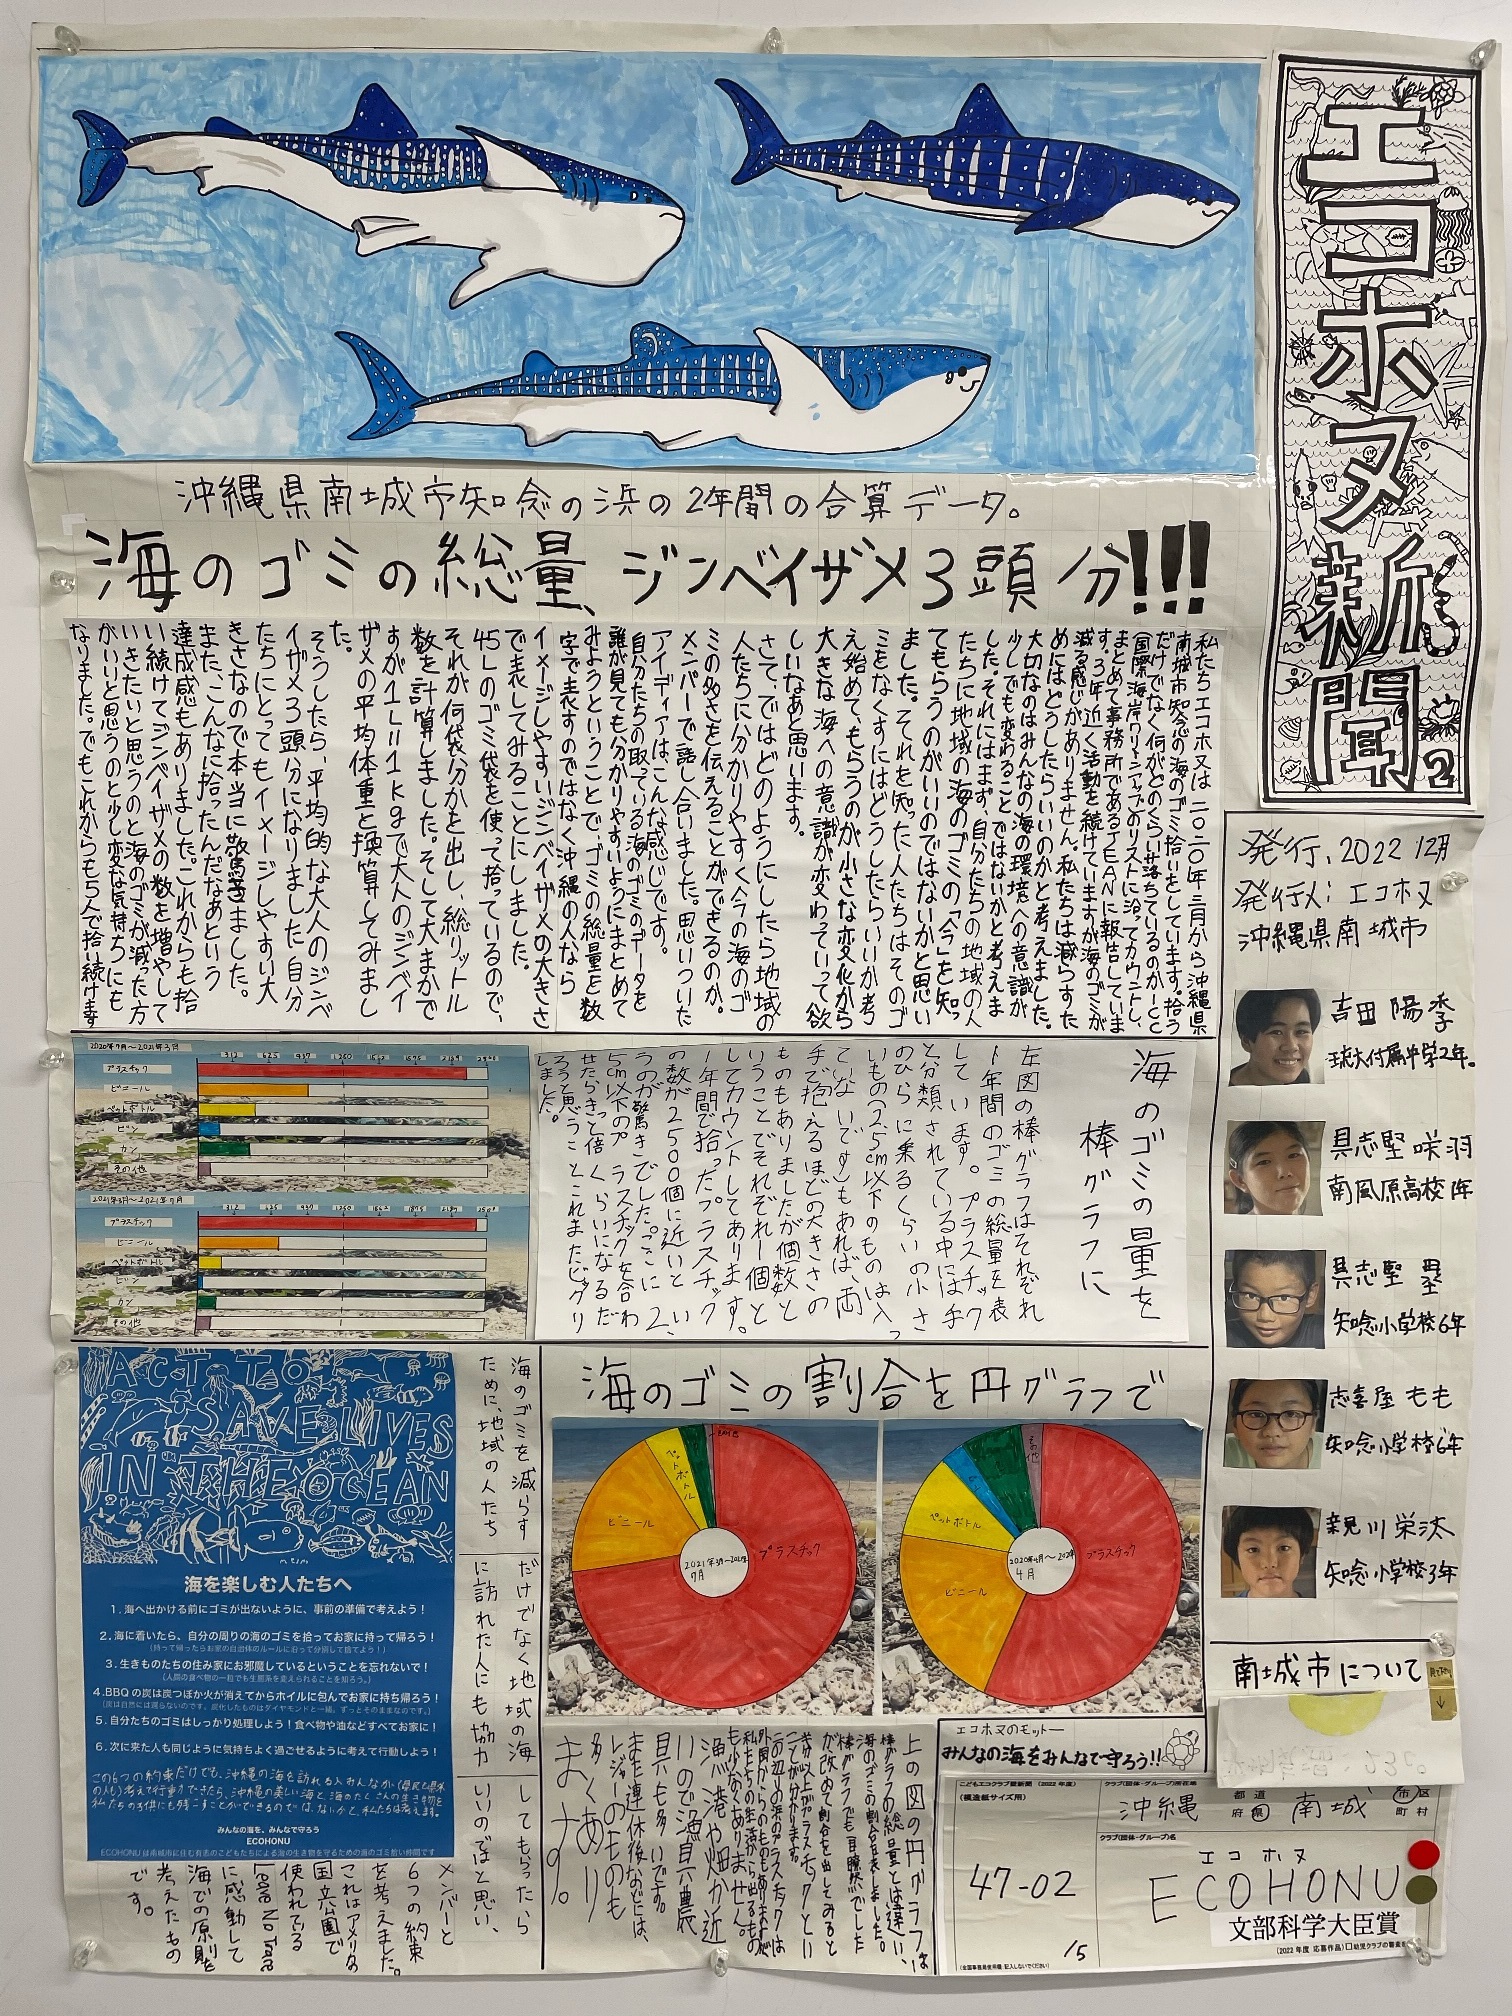 エコホヌ新聞
2
沖縄県南城市知念の浜の2年間の合算データ。
海のゴミの総量、ジンベイザメ3頭分!!!
発行、2022 12月
発行〆:エコホヌ
沖縄県南城市
吉田 陽季
琉大付属中学2年。
具志堅 咲羽
南風原高校1年
具志堅 塁
知念小学校6年
志喜屋 もも
知念小学校6年
新見川 栄汰
知念小学校3年
私たちエコホヌは二〇二〇年三月から沖縄県
南城市知念の海のゴミ拾いをしています。拾う
だけでなく何がどのくらい落ちているのかICC
「国際海岸クリーンアップ」のリストに沿ってカウントし、
まとめて事務所であるJEANに報告していま
す。3年近く活動を続けていますが海のゴミが
減る感じがありません。私たちは減らすた
めにはどうしたらいいのかと考えました。
大切なのはみんなの海の環境への意識が
少しでも変わることではないかと考えま
した。それにはまず、自分たちの地域の人
たちに地域の海のゴミの「今」を知っ
てもらうのがいいのではないかと思い
ました。それを知った人たちはそのゴ
ミをなくすにはどうしたらいいか考
え始めて、もらうのが小さな変化から
大きな海への意識が変わっていって欲
しいなあと思います。
さて、ではどのようにしたら地域の
人たちに分かりやすく今の海のゴ
ミの多さを伝えることができるのか。
メンバーで話し合いました。思いついた
アイディアはこんな感じです。
自分たちの取っている海のゴミのデータを
誰が見ても分かりやすいようにまとめて
みようということで、ゴミの総量を数
字で表すのではなく沖縄の人なら
イメージしやすいジンベイザメの大きさ
で表してみることにしました。
45Lのゴミ袋を使って拾っているので、
それが何袋分かを出し、総リットル
数を計算しました。そして大まかで
すが1L=1kgで大人のジンベイ
ザメの平均体重と換算してみまし
た。
そうしたら、平均的な大人のジンベ
イザメ3頭分になりました。自分
たちにとってもイメージしやすい大
きさなので本当に驚きました。
また、こんなに拾ったんだなあという
達成感もありました。これからも拾
い続けてジンベイザメの数を増やして
いきたいと思うのと海のゴミが減った方
がいいと思うのと少し変な気持ちにも
なりました。でもこれからも5人で拾い続けます
2020年9月〜2021年3月
プラスチック
ビニール
ペットボトル
ビン
カン
その他
2021年3月〜2021年9月
プラスチック
ビニール
ペットボトル
ビン
カン
その他
海のゴミの量を
棒グラフに
左図の棒グラフはそれぞれ
1年間のゴミの総量を表
しています。プラスチック
と分類されている中には手
のひらに乗るくらいの小さ
いもの(2.5cm以下のものは入っ
ていないです)もあれば、両
手で抱えるほどの大きさの
ものもありましたが個数と
いうことでそれぞれ一個と
してカウントしてあります。
1年間で拾ったプラスチック
の数が2500個に近いとい
うのが驚きでした。ここに2、
5cm以下のプラスチックを合わ
せたらきっと倍くらいになるだ
ろうと思うとこれまたビックリ
しました。
ACT TO
SAVE LIVES
IN THE OCEAN
海を楽しむ人たちへ
1.海へ出かける前にゴミが出ないように、事前の準備で考えよう!
2.海に着いたら、自分の周りの海のゴミを拾ってお家に持って帰ろう!
(持って帰ったらお家の自治体のルールに沿って分別して捨てよう!)
3.生きものたちの住み家にお邪魔しているということを忘れないで!
(人間の食べ物の一粒でも生態系を変えられることを知ろう。)
4.BBQの炭は炭つぼか火が消えてからホイルに包んでお家に持ち帰ろう!
(炭は自然には還らないのです。炭化したものはダイヤモンドと一緒。ずっとそのままなのです。)
5.自分たちのゴミはしっかり処理しよう!食べ物や油などすべてお家に!
6.次に来た人も同じように気持ちよく過ごせるように考えて行動しよう!
この6つの約束だけでも、沖縄の海を訪れる人みんなが(県民と県外
の人も)考えて行動できたら、沖縄の美しい海と、海のたくさんの生き物を
私たちの子供にも残すことができるのではないかと、私たちは考えます。
みんなの海を、みんなで守ろう
ECOHONU
ECOHONUは南城市に住む有志のこどもたちによる海の生き物を守るための海のゴミ拾い仲間です
海のゴミを減らす
ために、地域の人たち
だけでなく地域の海
に訪れた人にも協力
してもらったら
いいのではと思い、
メンバーと
6つの約束
を考えました。
これはアメリカの
国立公園で
使われている
Leave No Trace
に感動して
海での原則を
考えたもの
です。
海のゴミの割合を円グラフで
プラスチック
ビニール
ペットボトル
2021年3月〜2021年
9月
プラスチック
ビニール
ペットボトル
その他
4月
上の図の円グラフは
棒グラフの総量とは違い、
海のゴミの割合を表しました。
棒グラフでも一目瞭然でした
が改めて割合を出してみると
半分以上がプラスチックとい
うことが分かります。
私たちの生活から出るもの
も少なくありません。
漁港や畑が近
いので漁具や農
具もも多いです。
また連休後などは、
レジャーのものも
多くあり
ます。
エコホヌのモットー
みんなの海をみんなで守ろう!!
南城市について
こどもエコクラブ壁新聞(2022年度)
(模造紙サイズ用)
クラブ(団体・グループ)所在地
沖縄
都 道
府 県
南城
市 区
町 村
クラブ(団体・グループ)名
エコ ホヌ
ECOHONU
47-02
15
文部科学大臣賞
(全国事務局使用欄・記入しないでください)